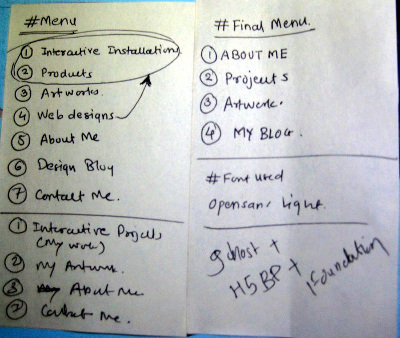 #Menu
① Interactive Installations
② Products
③ Artworks.
④ Web designs
⑤ About Me
⑥ Design Blog
⑦ Contact Me.
① Interactive Projects
(My work)
② My Artwork.
③ About Me
⑦ Contact Me.
#Final Menu.
① ABOUT ME
② Projects
③ Artwork.
④ MY BLOG.
# Font used
Opensans Light.
ghost +
H5BP +
Foundation